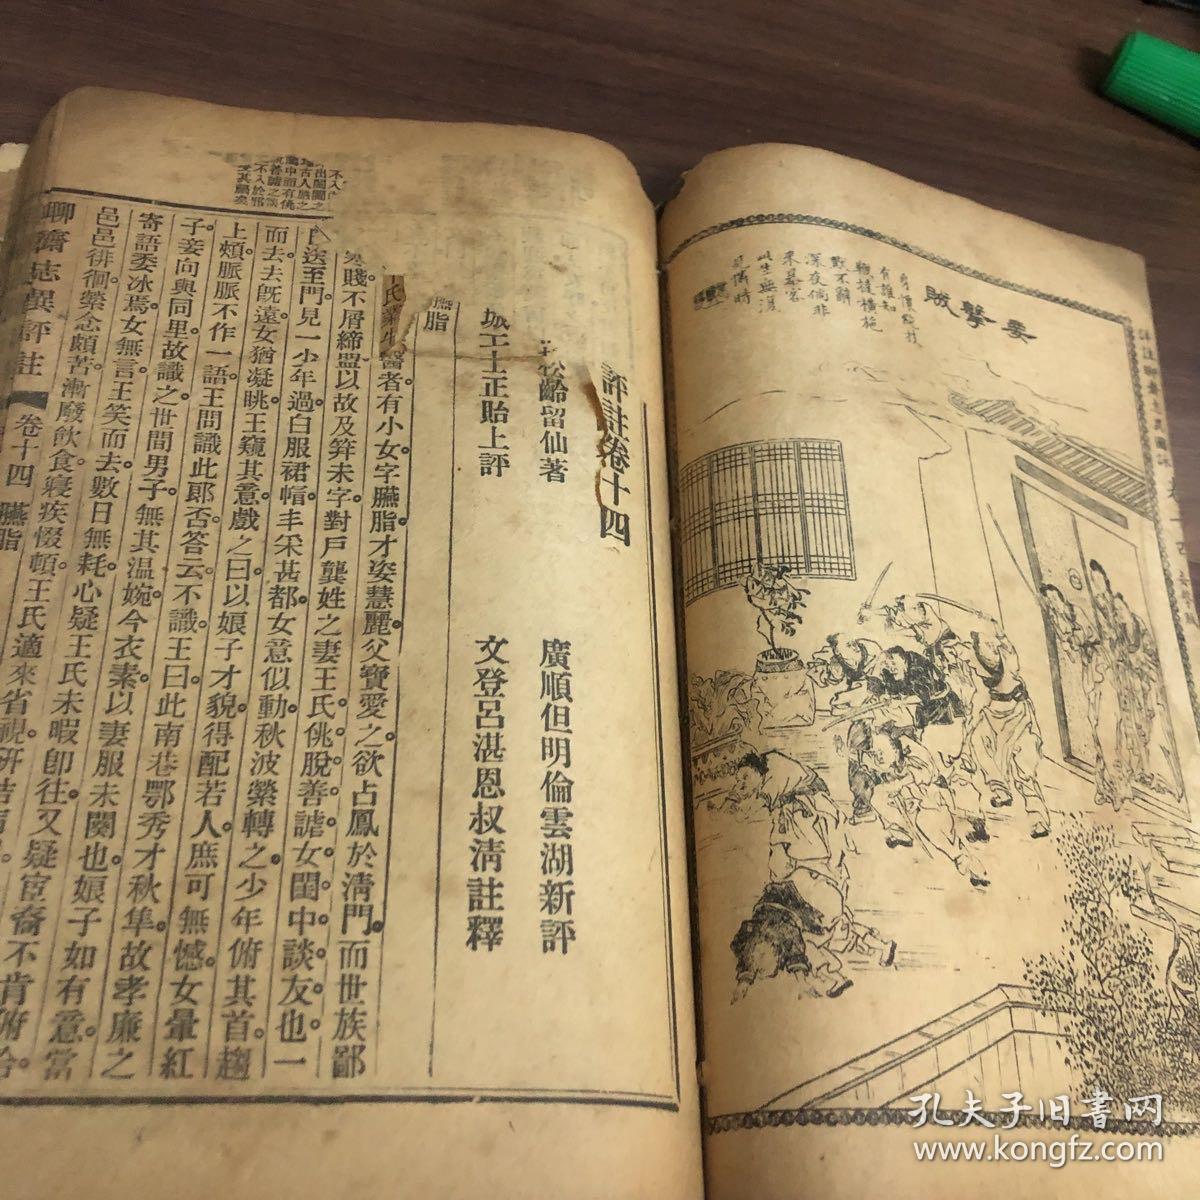 妾擊賊
身懷絕技
有誰知
鞭撻橫施
總不辭
深夜倘非
來暴客
此生無復
見儀時
評註卷十四
松齡留仙著
廣順但明倫雲湖新評
城王士正貽上評
文登呂湛恩叔清註釋
臙脂
醫者有小女字臙脂才姿慧麗父寶愛之欲占鳳於清門而世族鄙
賤不屑締盟以故及笄未字對戶龔姓之妻王氏佻脫善謔女閨中談友也一
送至門見一小年過白服裙帽丰采甚都女意似動秋波縈轉之少年俯其首趨
而去去既遠女猶凝眺王窺其意戲之曰以娘子才貌得配若人庶可無憾女暈紅
上頰脈脈不作一語王問識此郎否答云不識王曰此南巷鄂秀才秋隼故孝廉之
子妾向與同里故識之世間男子無其温婉今衣素以妻服未闋也娘子如有意當
寄語委冰焉女無言王笑而去數日無耗心疑王氏未暇卽往又疑宦裔不肯俯拾
邑邑徘徊縈念頗苦漸廢飲食寢疾惙頓王氏適來省視研詰
聊齋志異評註 卷十四 臙脂
孔夫子旧书网
www.kongfz.com